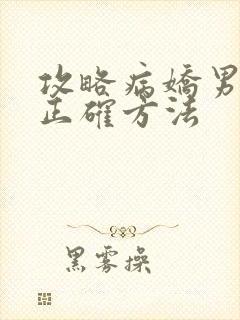 攻略病嬌男
正確方法
黑霧操